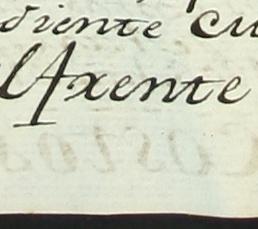 diente cu
el Axente